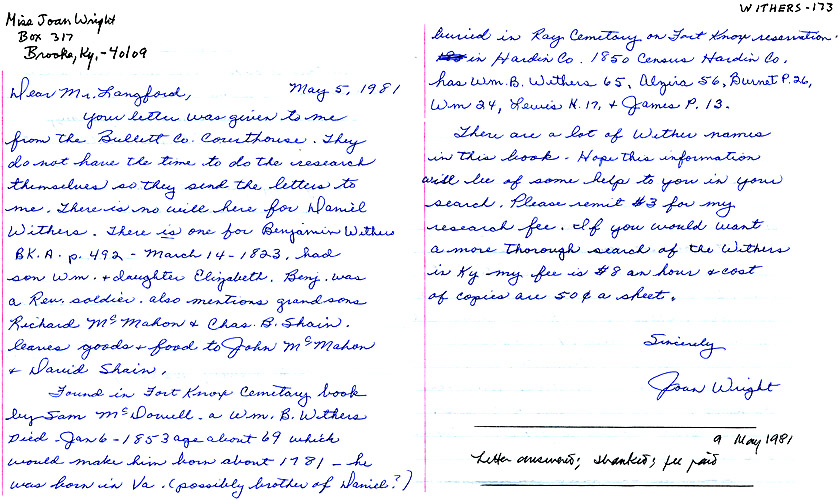 Miss Joan Wright
Box 317
Brooks, Ky. - 40109
Dear Mr. Langford,    May 5, 1981
Your letter was given to me
from the Bullett Co. Courthouse. They
do not have the time to do the research
themselves so they send the letters to
me. There is no will here for Daniel
Withers. There is one for Benjamin Withers
BK. A. p. 492 - March 14 - 1823. had
son Wm. + daughter Elizabeth. Benj. was
a Rev. soldier. also mentions grandsons
Richard McMahon & Chas. B. Shain.
leaves goods + food to John McMahon
& David Shain.
Found in Fort Knox Cemetary book
by Sam McDowell. a Wm. B. Withers
Died Jan 6 - 1853 age about 69 which
would make him born about 1781 - he
was born in Va. (possibly brother of Daniel?)
WITHERS - 173
buried in Ray Cemetary on Fort Knox reservation
in Hardin Co. 1850 Census Hardin Co.
has Wm. B. Withers 65, Alzira 56, Burnet P. 26,
Wm 24, Lewis K. 17, + James P. 13.
There are a lot of Wither names
in this book - Hope this information
will be of some help to you in your
search. Please remit $3 for my
research fee. If you would want
a more thorough search of the Withers
in Ky my fee is $8 an hour & cost
of copies are 50¢ a sheet.
Sincerely
Joan Wright
9 May 1981
Letter answered; thanked; fee paid